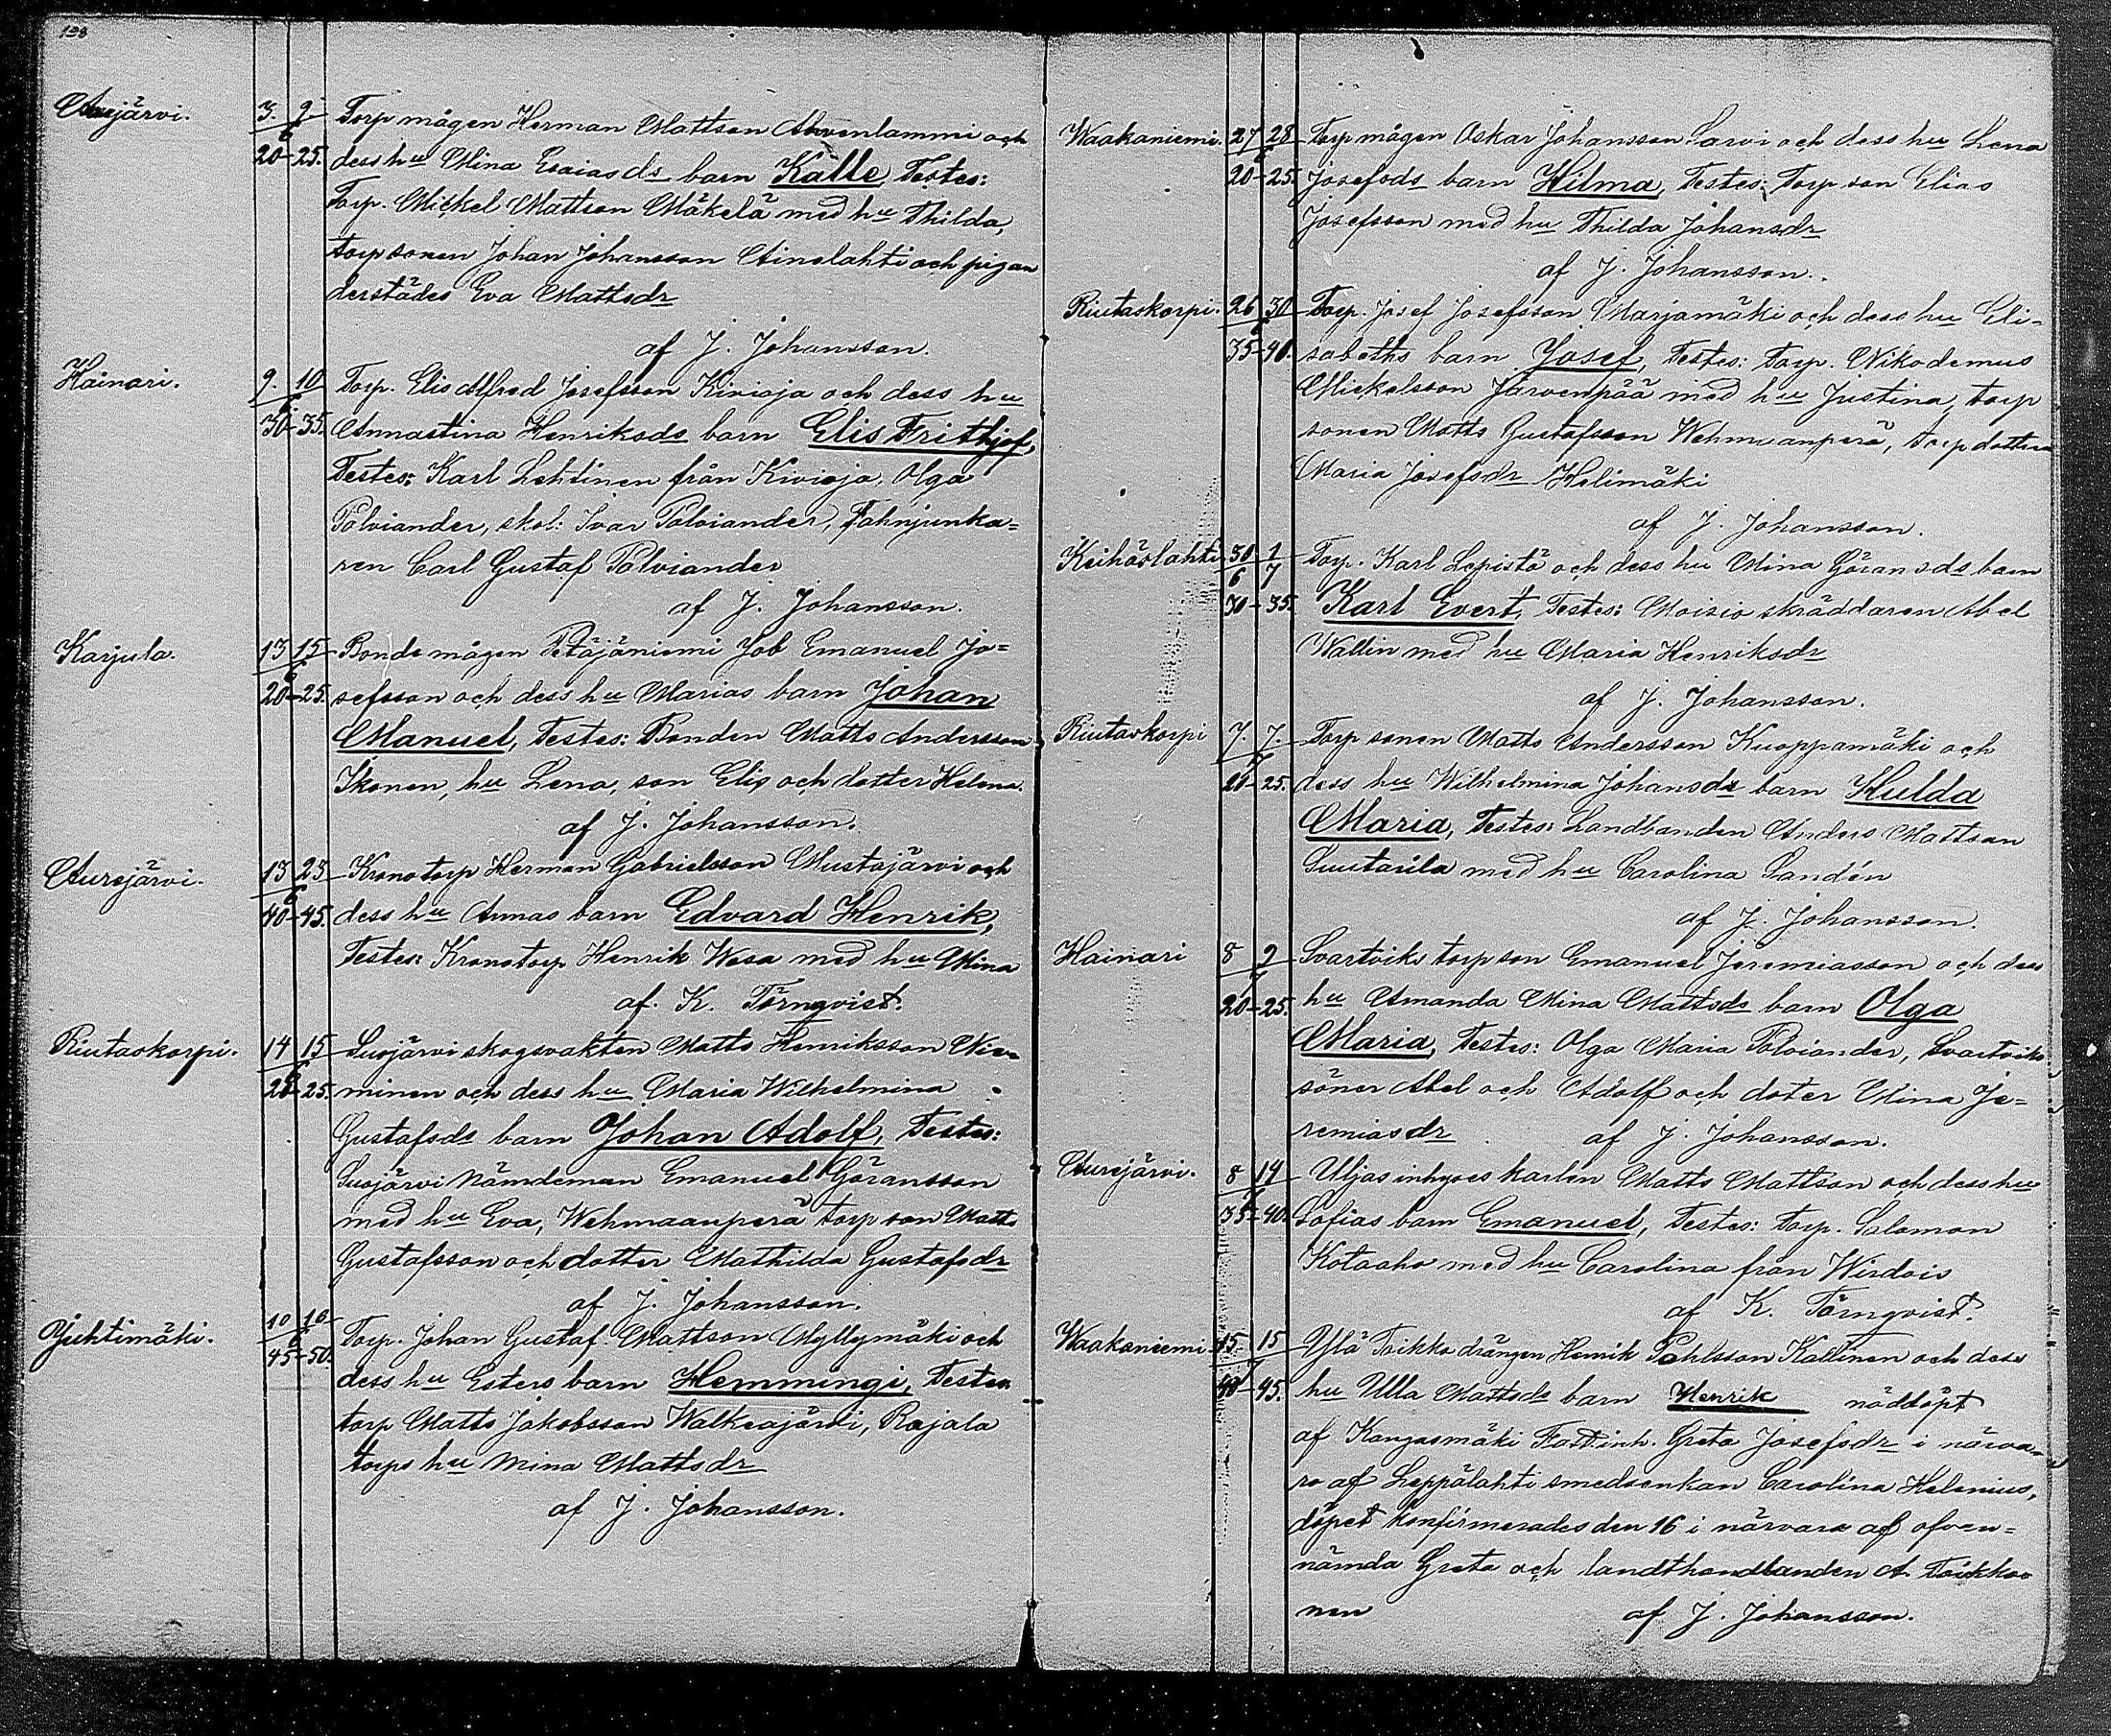 198
Aurejärvi. 3. 9. Torp mågen Herman Mattson Ahvenlammi och
6
20-25. dess hu Mina Esaiasds barn Kalle, Testes:
Torp. Mickel Mattson Mäkelä med hu Thilda,
torpsonen Johan Johansson Ainolahti och pigan
derstädes Eva Mattsdr
af J. Johansson.
Hainari. 9. 10 Torp. Elis Alfred Josefsson Kivioja och dess hu
6
30-35. Annastina Henriksds barn Elis Frithjof,
Testes: Karl Lehtinen från Kivioja, Olga
Polviander, skol: Ivar Polviander, Fahnjunka=
ren Carl Gustaf Polviander
af J. Johansson.
Karjula. 13 15 Bonde mågen Petäjäniemi Job Emanuel Jo=
6
20-25. sefsson och dess hu Marias barn Johan
Manuel, Testes: Bonden Matts Andersson
Ikonen, hu Lena, son Elis och dotter Helena.
af J. Johansson.
Aurejärvi. 13 23 Kronotorp Herman Gabrielsson Mustajärvi och
6
40-45. dess hu Annas barn Edvard Henrik,
Testes: Kronotorp Henrik Wasa med hu Mina
af. K. Törnqvist.
Riutaskorpi. 14 15 Suojärvi skogsvakten Matts Henriksson Nie=
6
20-25. minen och dess hu Maria Wilhelmina
Gustafsds barn Johan Adolf, Testes:
Suojärvi Nämdeman Emanuel Göransson
med hu Eva, Wehmaanperä torp son Matts
Gustafsson och dotter Mathilda Gustafsdr
af J. Johansson.
Juhtimäki. 10 16
6
45-50. Torp. Johan Gustaf Mattson Myllymäki och
dess hu Esters barn Hemmingi, Testes
torp Matts Jakobsson Walkeajärvi, Rajala
torps hu Mina Mattsdr
af J. Johansson.
Waakaniemi. 27 28 Torp mågen Oskar Johansson Sarvi och dess hu Lena
6
20-25. Josefsds barn Hilma, Testes: Torp son Elias
Josefsson med hu Thilda Johansdr
af J. Johansson.
Riutaskorpi. 26 30 Torp. Josef Josefsson Marjamäki och dess hu Eli=
6
35-40. sabeths barn Josef, Testes: Torp. Nikodemus
Mickelsson Järvenpää med hu Justina, torp
sonen Matts Gustafsson Wehmaanperä, torp dottren
Maria Josefsdr Helimäki
af J. Johansson.
Keihäslahti 30 1 Torp. Karl Lepistö och dess hu Mina Göransds barn
6 7
30-35. Karl Evert, Testes: Moisio skräddaren Abel
Wallin med hu Maria Henriksdr
af J. Johansson.
Riutaskorpi 7. 7. Torp sonen Matts Andersson Kuoppamäki och
7
20-25. dess hu Wilhelmina Johansds barn Hulda
Maria, Testes: Landbonden Anders Mattson
Suutarila med hu Carolina Sandén
af J. Johansson.
Hainari 8 9 Svartviks torp son Emanuel Jeremiasson och dess
7
20-25. hu Amanda Mina Mattsds barn Olga
Maria, Testes: Olga Maria Polviander, Svartviks
söner Abel och Adolf och doter Mina Je=
remiasdr af J. Johansson.
Aurejärvi. 8 14 Uljas inhyses karlen Matts Mattson och dess hu
7
35-40. Sofias barn Emanuel, Testes: torp. Salomon
Kotaaho med hu Carolina från Wirdois
af K. Törnqvist.
Waakaniemi 15 15 Ylä Toikko drängen Henrik Pahlsson Kallinen och dess
7
40-45. hu Ulla Mattsds barn Henrik nöddöpt
af Kangasmäki Fast.inh. Greta Josefsdr i närva=
ro af Leppälahti smedsenkan Carolina Helenius,
döpet konfirmerades den 16 i närvaro af ofvan=
nämda Greta och landthandlanden A. Toikko=
nen af J. Johansson.